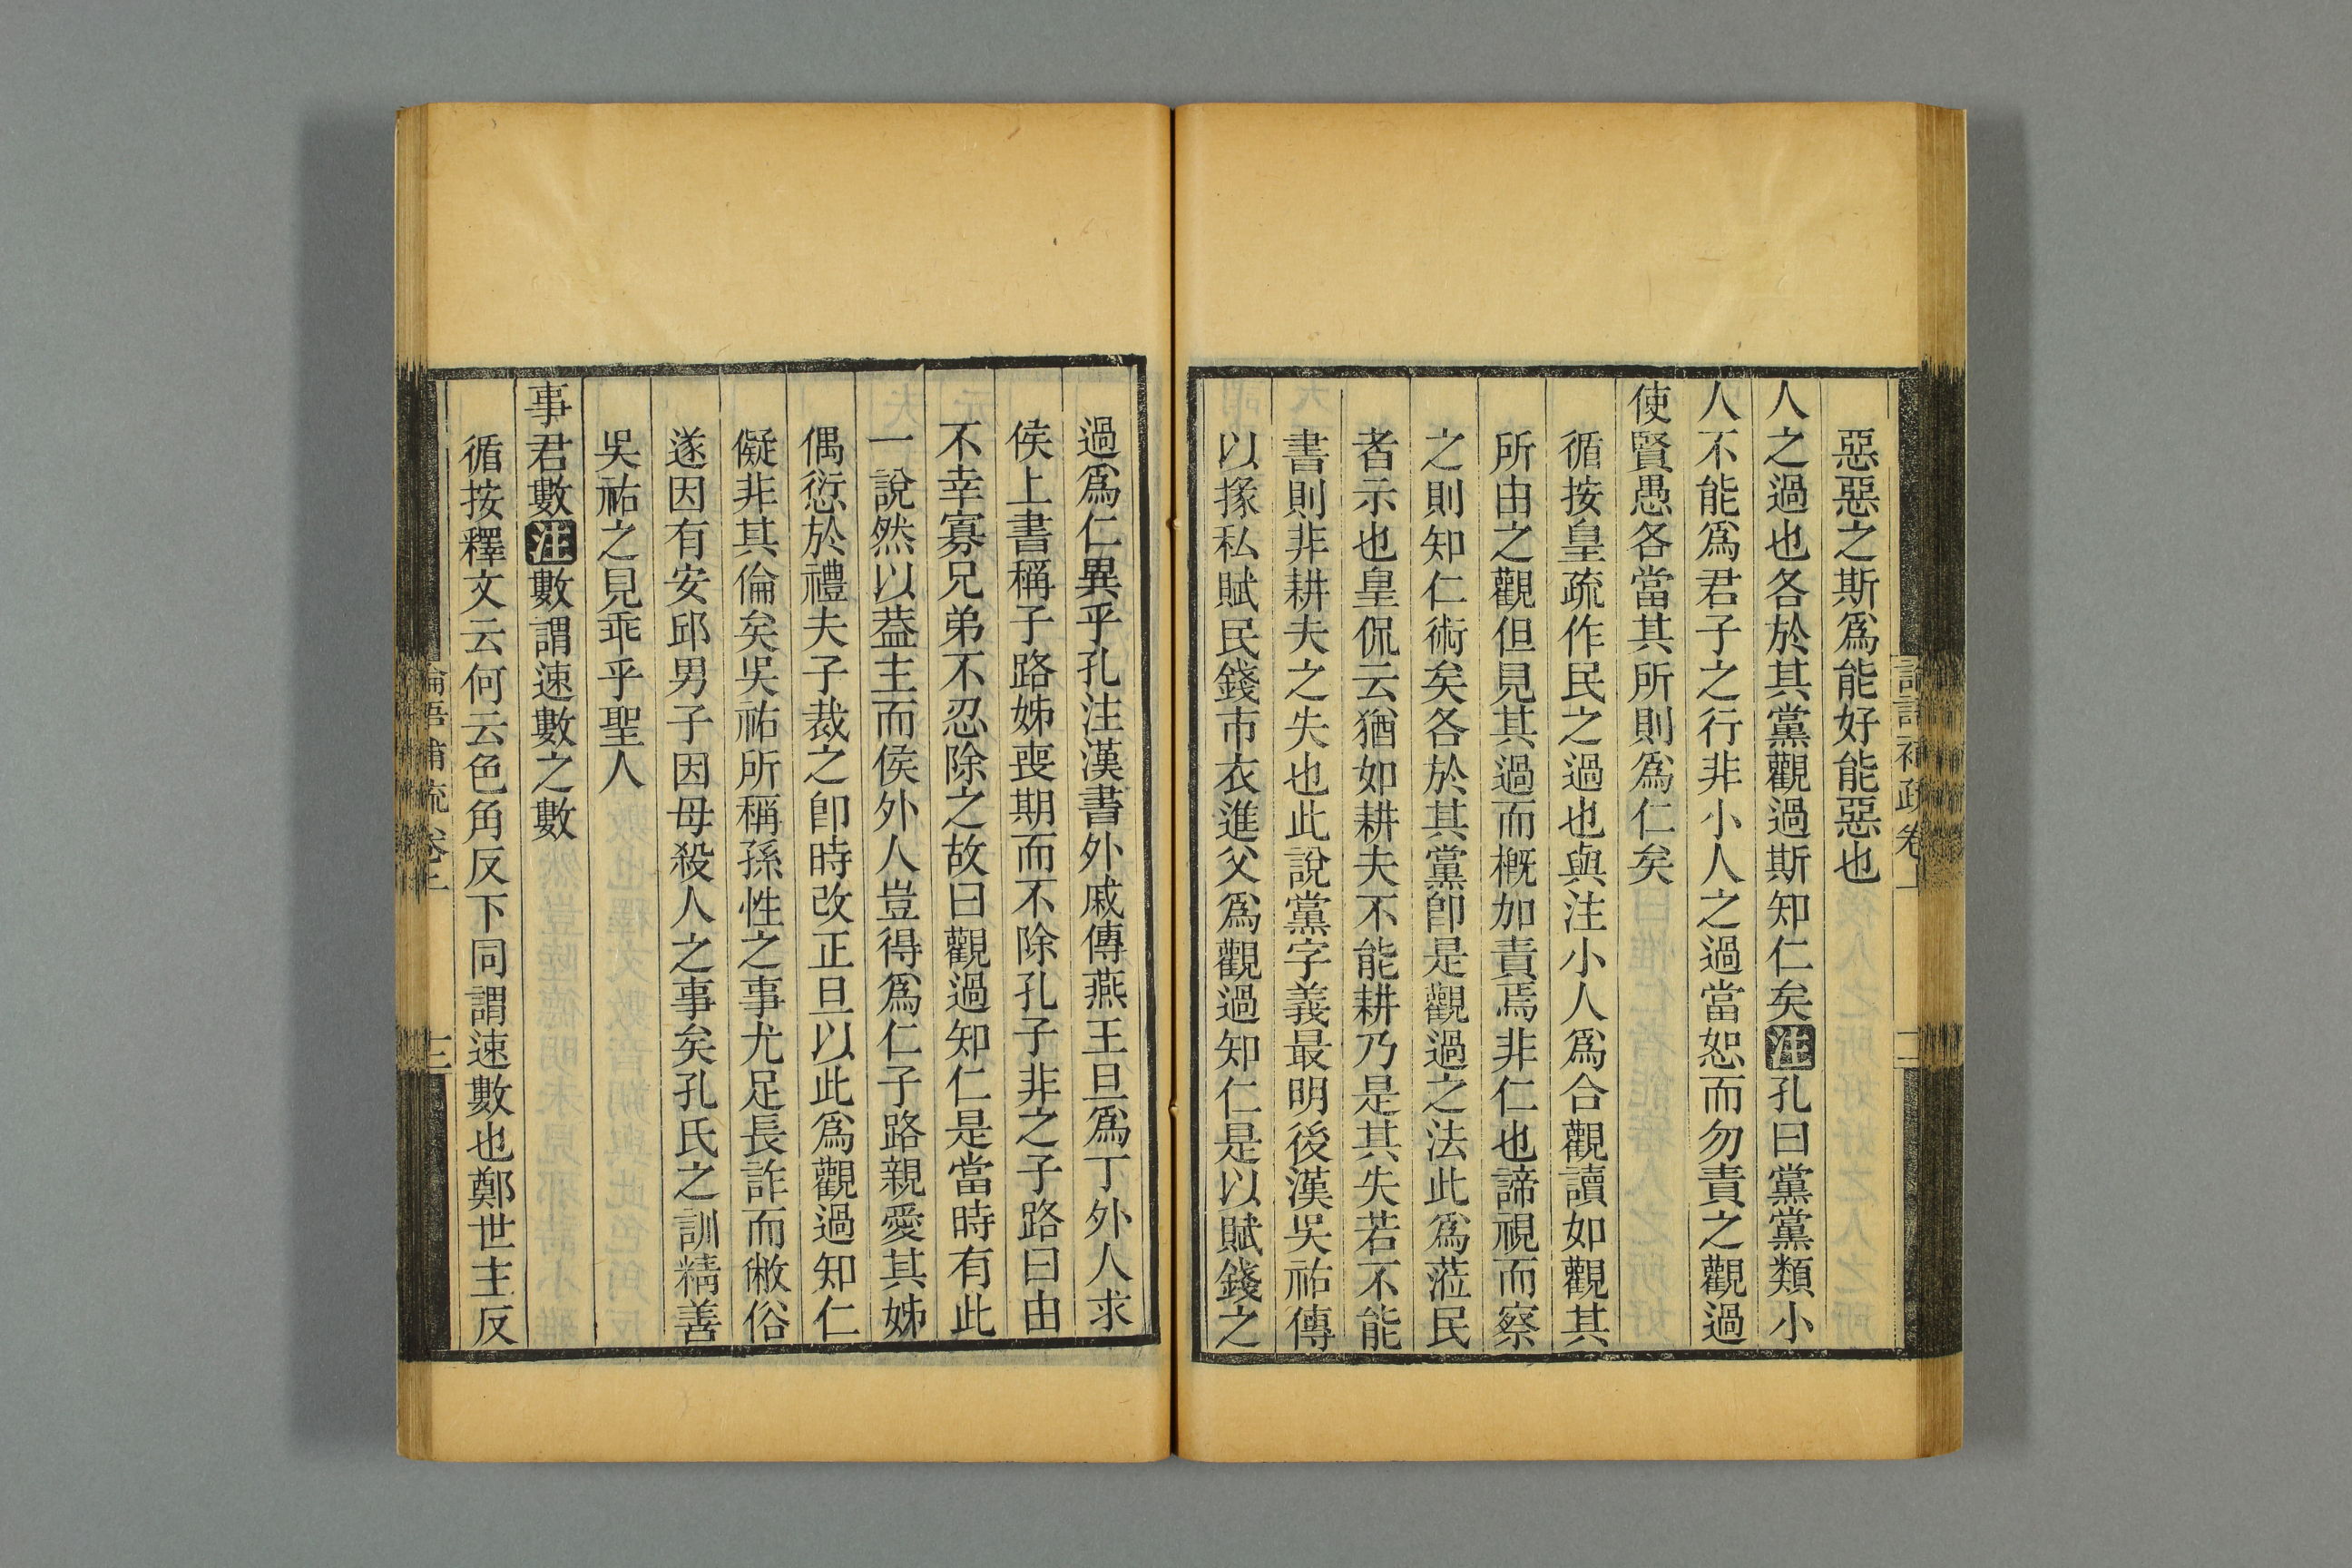 惡惡之斯爲能好能惡也
人之過也各於其黨觀過斯知仁矣注孔曰黨黨類小
人不能爲君子之行非小人之過當恕而勿責之觀過
使賢愚各當其所則爲仁矣
循按皇疏作民之過也與注小人爲合觀讀如觀其
所由之觀但見其過而概加責焉非仁也諦視而察
之則知仁術矣各於其黨卽是觀過之法此爲蒞民
者示也皇侃云猶如耕夫不能耕乃是其失若不能
書則非耕夫之失也此說黨字義最明後漢吳祐傳
以掾私賦民錢市衣進父爲觀過知仁是以賦錢之
過爲仁異乎孔注漢書外戚傳燕王旦爲丁外人求
侯上書稱子路姊喪期而不除孔子非之子路曰由
不幸寡兄弟不忍除之故曰觀過知仁是當時有此
一說然以葢主而侯外人豈得爲仁子路親愛其姊
偶愆於禮夫子裁之卽時改正旦以此爲觀過知仁
儗非其倫矣吳祐所稱孫性之事尤足長詐而敝俗
遂因有安邱男子因母殺人之事矣孔氏之訓精善
吳祐之見乖乎聖人
事君數注數謂速數之數
循按釋文云何云色角反下同謂速數也鄭世主反
論語補疏卷上
三